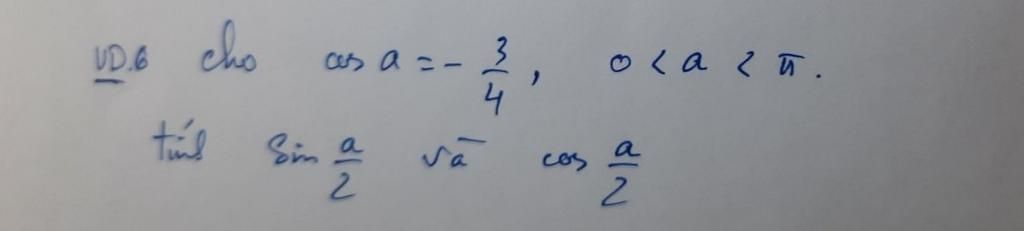 VD.6 cho cos a = - 3/4, 0 < a < π.
tính sin a/2 và cos a/2